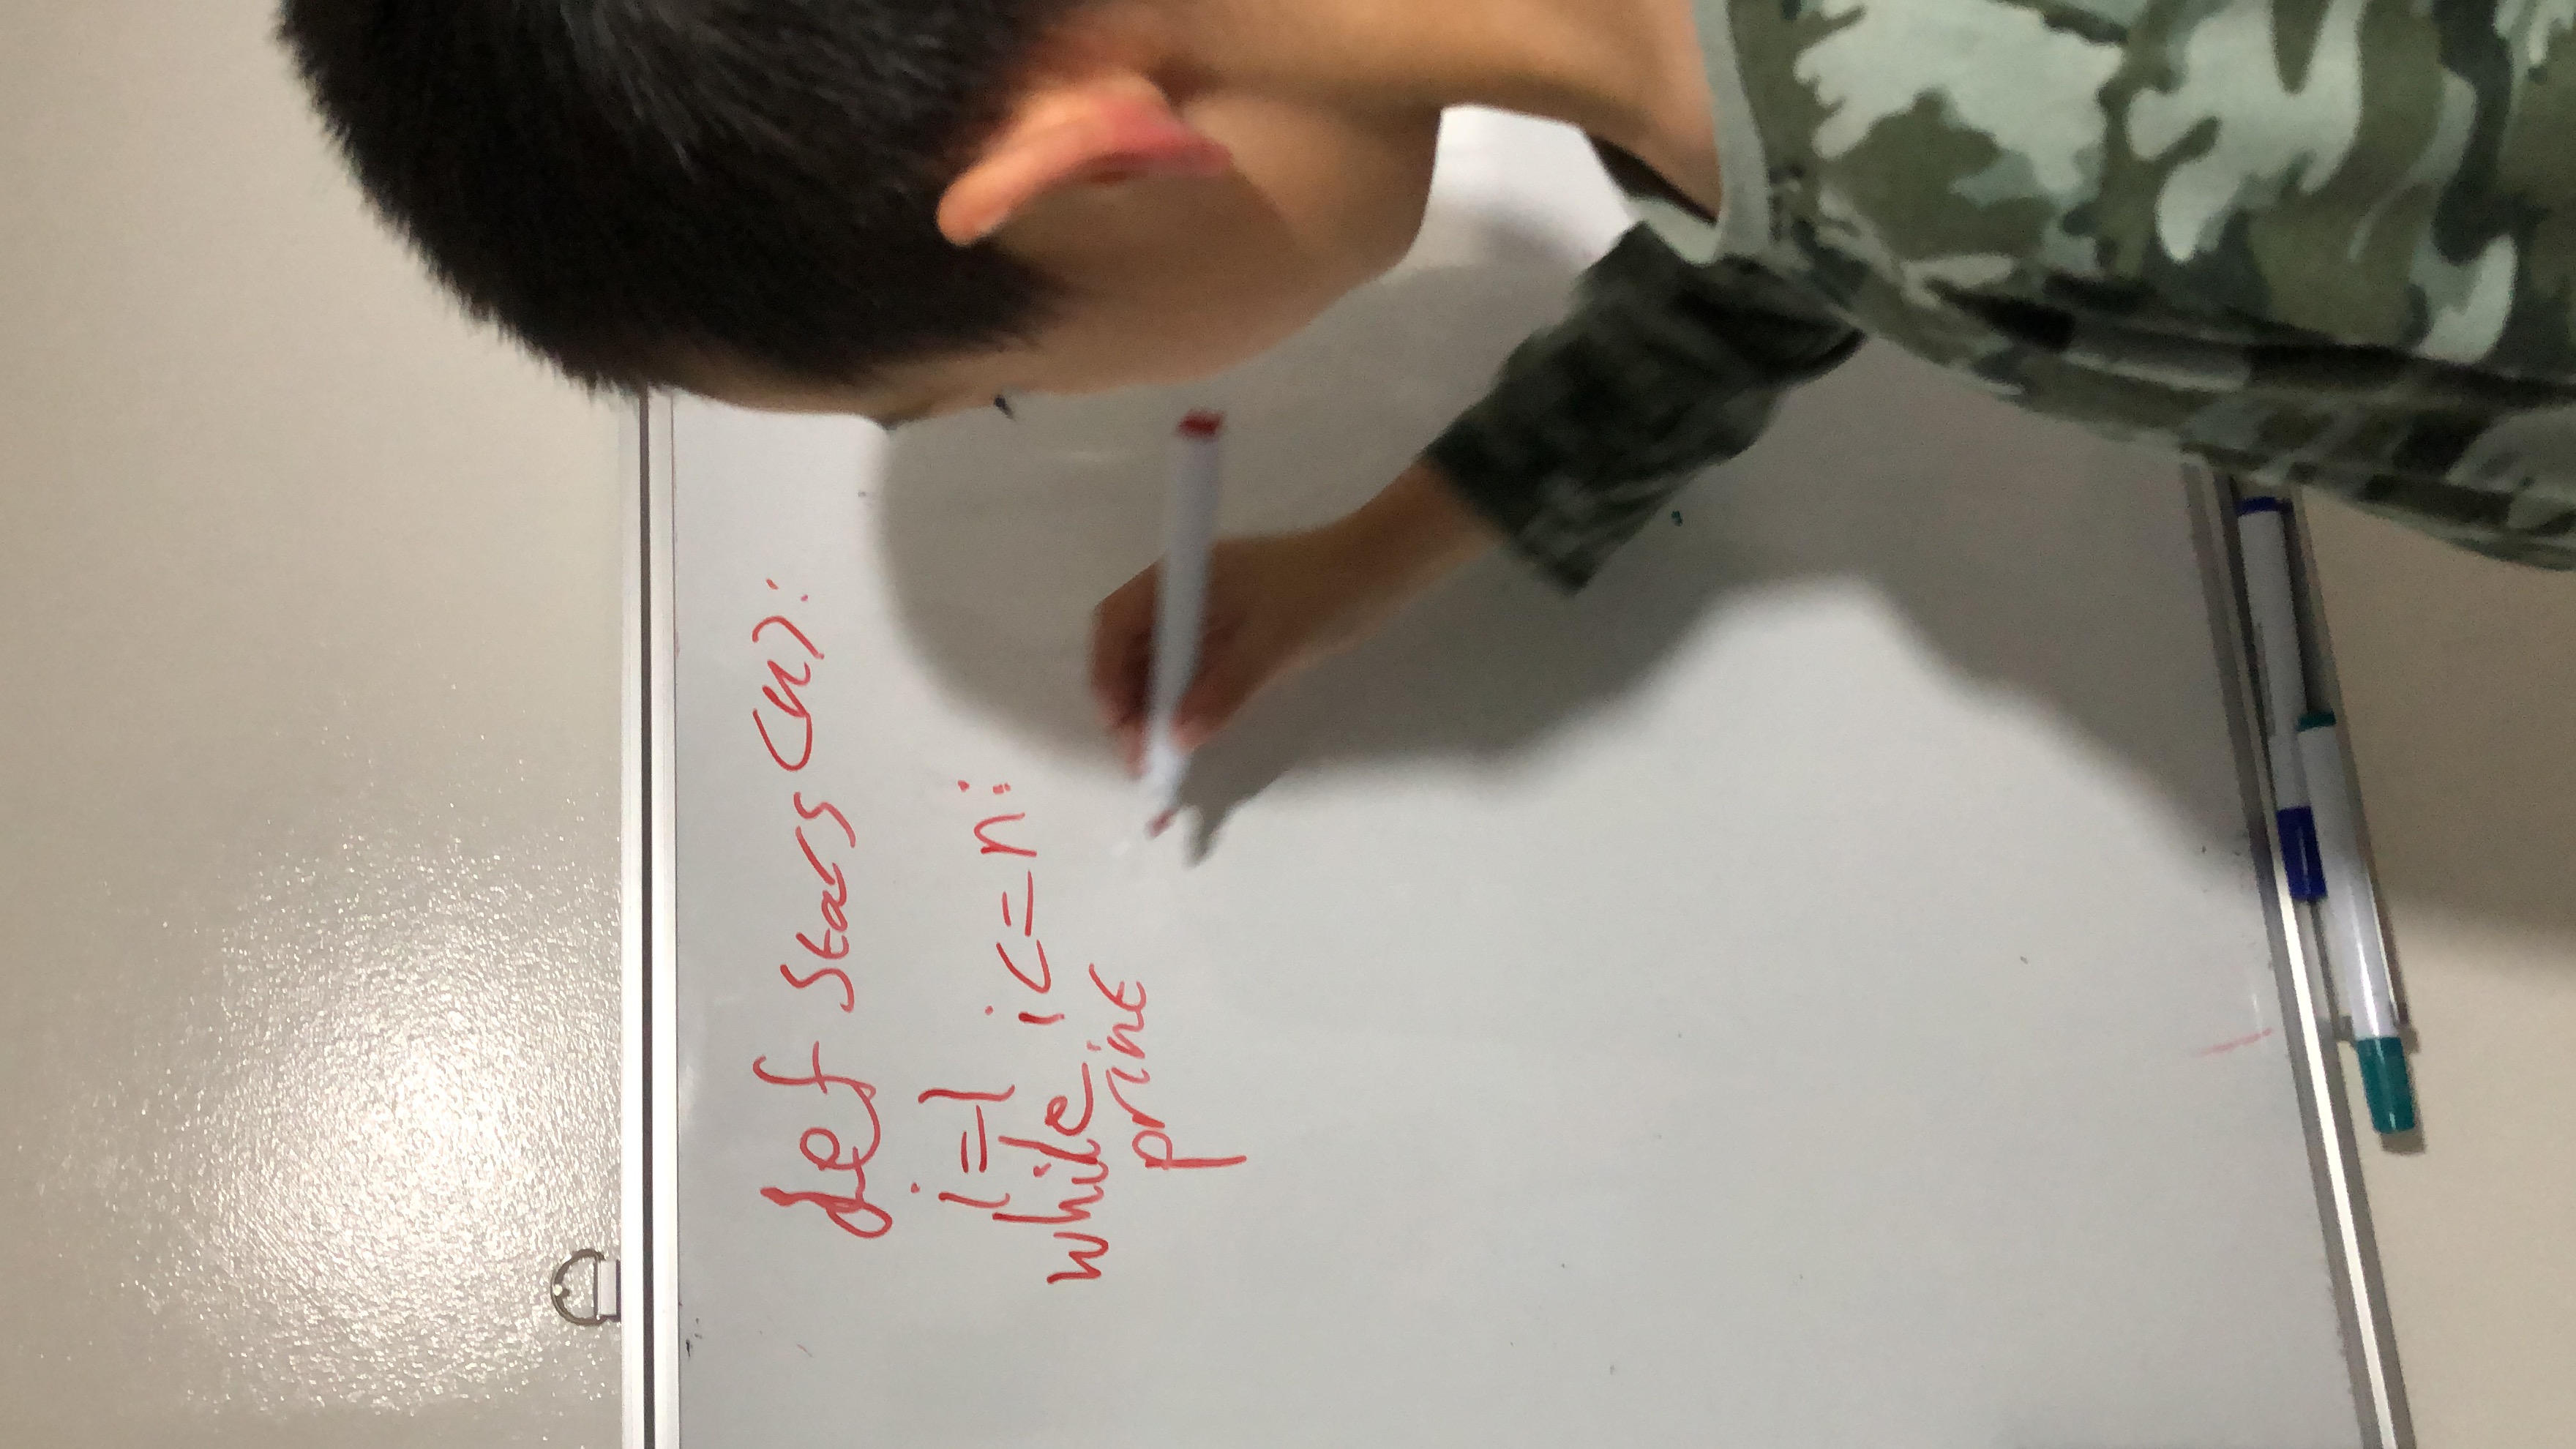 def stars(n):
i=1
while i<=n:
print